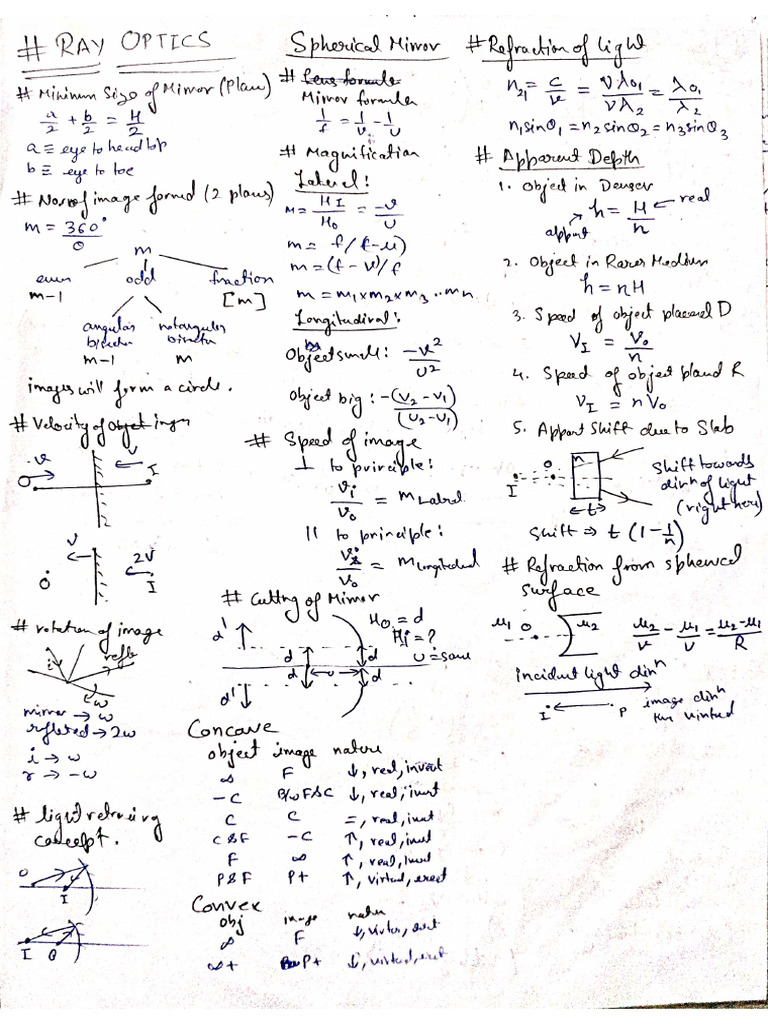 # RAY OPTICS
# Minimum Size of Mirror (Plan)
a/2 + b/2 = H/2
a ≡ eye to head top
b ≡ eye to toe
# Nos. of image formed (2 plans)
m = 360°/θ
m
even odd fraction
m-1 [m]
angular bisector notangular bisector
m-1 m
images will form a circle.
# Velocity of object
-v v
O I
v 2v
O I
# rotation of image
i refle
ω
mirror → ω
reflected → 2ω
i → ω
r → -ω
# light retracing
concept.
O C I
I O C
Spherical Mirror
# Lens formula
Mirror formula
1/f = 1/v - 1/u
# Magnification
Lateral:
M = HI/Ho = -v/u
m = f/(f-u)
m = (f-v)/f
m = m₁×m₂×m₃...mn
Longitudinal:
Object small: -v²/u²
Object big: -(v₂-v₁)/(u₂-u₁)
# Speed of image
⊥ to principle:
vi/vo = m Lateral
|| to principle:
vi/vo = m Longitudinal
# Cutting of Mirror
d' d d u d d d'
Ho = d
Hi = ?
u = same
Concave
object image nature
∞ F ↓, real, invert
-C B/w F&C ↓, real, invt
C C =, real, invt
C&F -C ↑, real, invt
F ∞ ↑, real, invt
P&F P+ ↑, virtual, erect
Convex
obj image natur
∞ F ↓, virtur, erect
∞+ P+ ↓, virtual, erect
# Refraction of light
n₂₁ = c/v = νλ₀₁/νλ₂ = λ₀₁/λ₂
n₁sinθ₁ = n₂sinθ₂ = n₃sinθ₃
# Apparent Depth
1. Object in Denser
h = H/n ← real
appart
2. Object in Rarer Medium
h = nH
3. Speed of object placed D
VI = Vo/n
4. Speed of object pland R
VI = nVo
5. Appart Shift due to Slab
I O n
t
Shift towards
dirnⁿ of light
(right here)
Shift ⇒ t(1-1/n)
# Refraction from spherical
surface
μ₁ O μ₂
μ₂/v - μ₁/u = μ₂-μ₁/R
incident light dirⁿ
I P
image dirⁿ